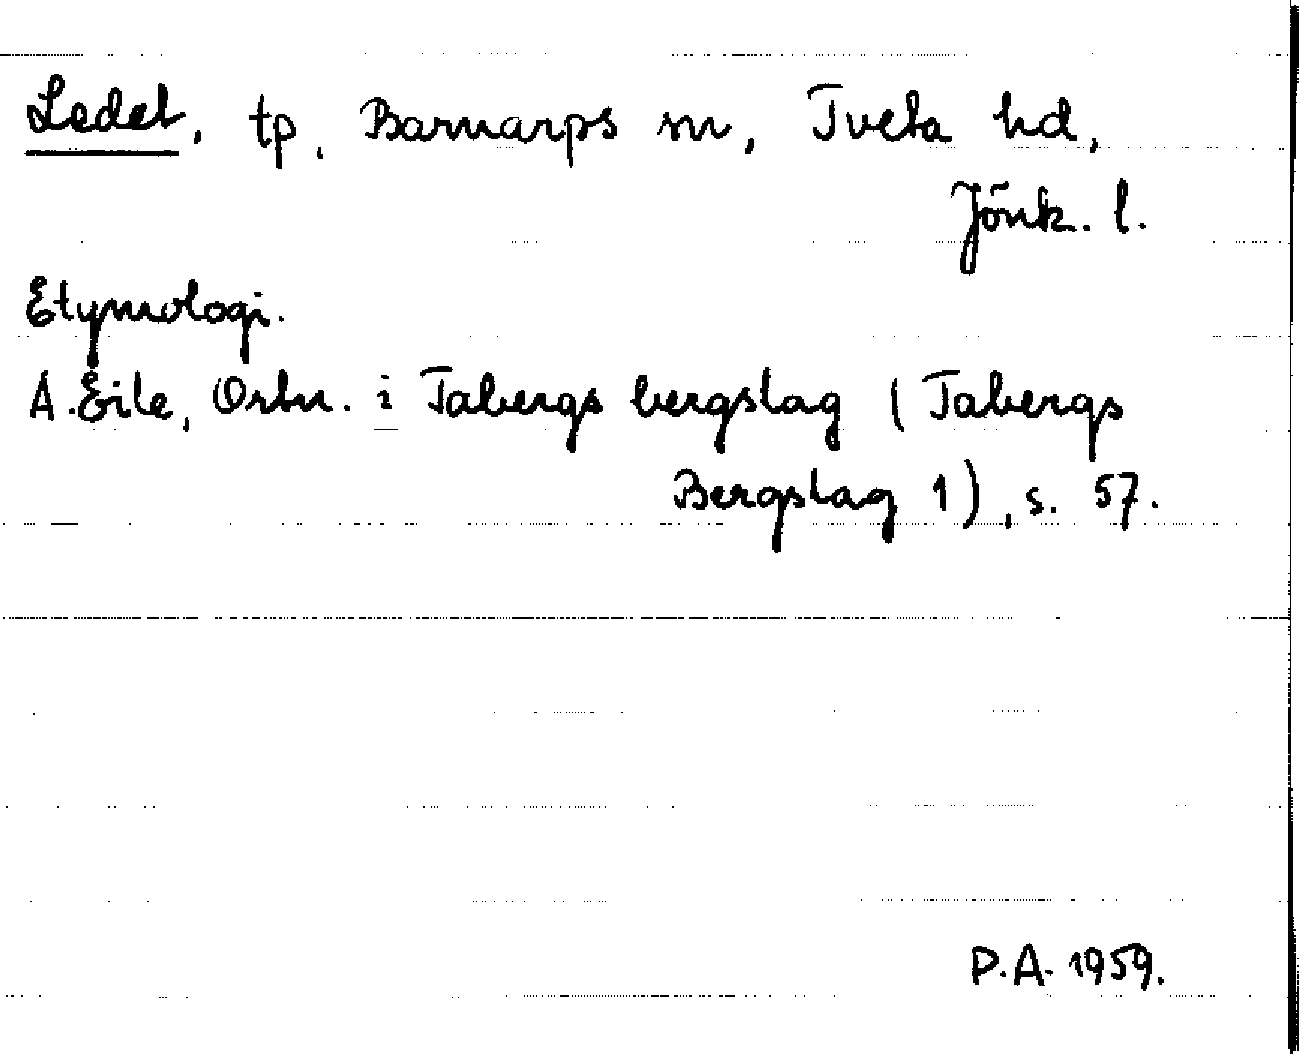 Ledet, tp, Barnarps sn, Tveta hd,
Jönk. l.
Etymologi.
A. Eile, Ortn. i Tabergs bergslag (Tabergs
Bergslag 1), s. 57.
P.A. 1959.